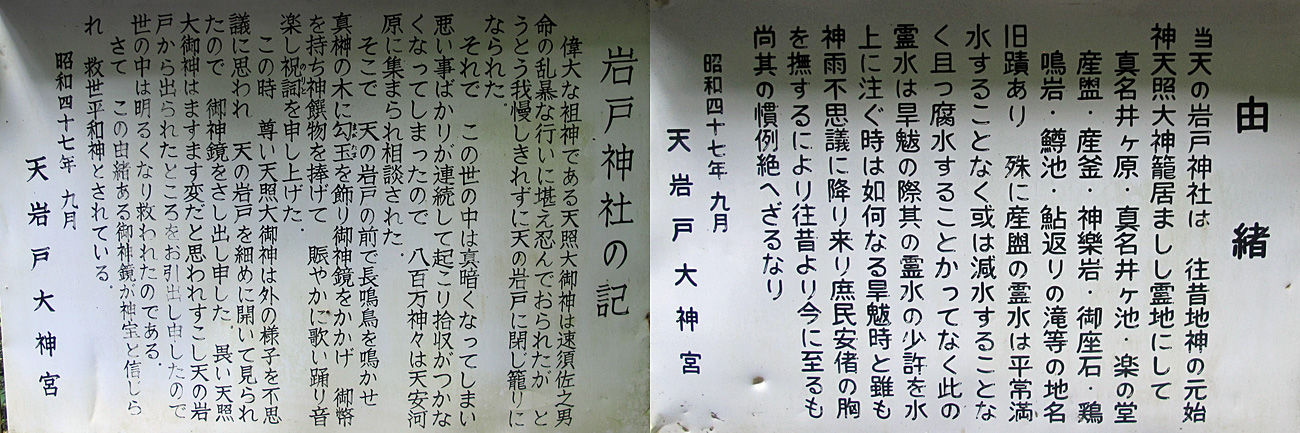 岩戸神社の記
偉大な祖神である天照大御神は速須佐之男
命の乱暴な行いに堪え忍んでおられたが と
うとう我慢しきれずに天の岩戸に閉じ籠りに
なられた.
それで この世の中は真暗くなってしまい
悪い事ばかりが連続して起こり拾収がつかな
くなってしまったので 八百万神々は天安河
原に集まられ相談された.
そこで 天の岩戸の前で長鳴鳥を鳴かせ
真榊の木に勾玉を飾り御神鏡をかかげ 御幣
を持ち神饌物を捧げて 賑やかに歌い踊り音
楽し祝詞を申し上げた.
この時 尊い天照大御神は外の様子を不思
議に思われ 天の岩戸を細めに開いて見られ
たので 御神鏡をさし出し申した 畏い天照
大御神はますます変だと思われすこし天の岩
戸から出られたところをお引出し申したので
世の中は明るくなり救われたのである.
さて この由緒ある御神鏡が神宝と信じら
れ 救世平和神とされている.
昭和四十七年 九月
天岩戸大神宮
由緒
当天の岩戸神社は 往昔地神の元始
神天照大神籠居ましし霊地にして
真名井ヶ原・真名井ヶ池・楽の堂
産盥・産釜・神樂岩・御座石・鶏
鳴岩・鱒池・鮎返りの滝等の地名
旧蹟あり 殊に産盥の霊水は平常満
水することなく或は減水することな
く且つ腐水することかってなく此の
霊水は旱魃の際其の霊水の少許を水
上に注ぐ時は如何なる旱魃時と雖も
神雨不思議に降り来り庶民安偖の胸
を撫するにより往昔より今に至るも
尚其の慣例絶へざるなり
昭和四十七年 九月
天岩戸大神宮